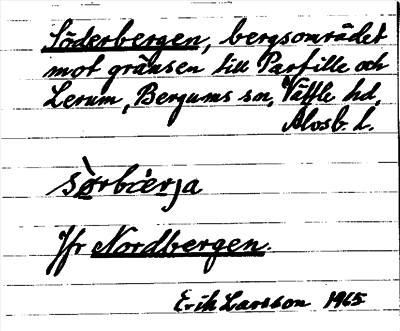 Söderbergen, bergsområdet
mot gränsen till Partille och
Lerum, Bergums sn, Vättle hd,
Älvsb. l.
Jfr Nordbergen.
Erik Larsson 1965